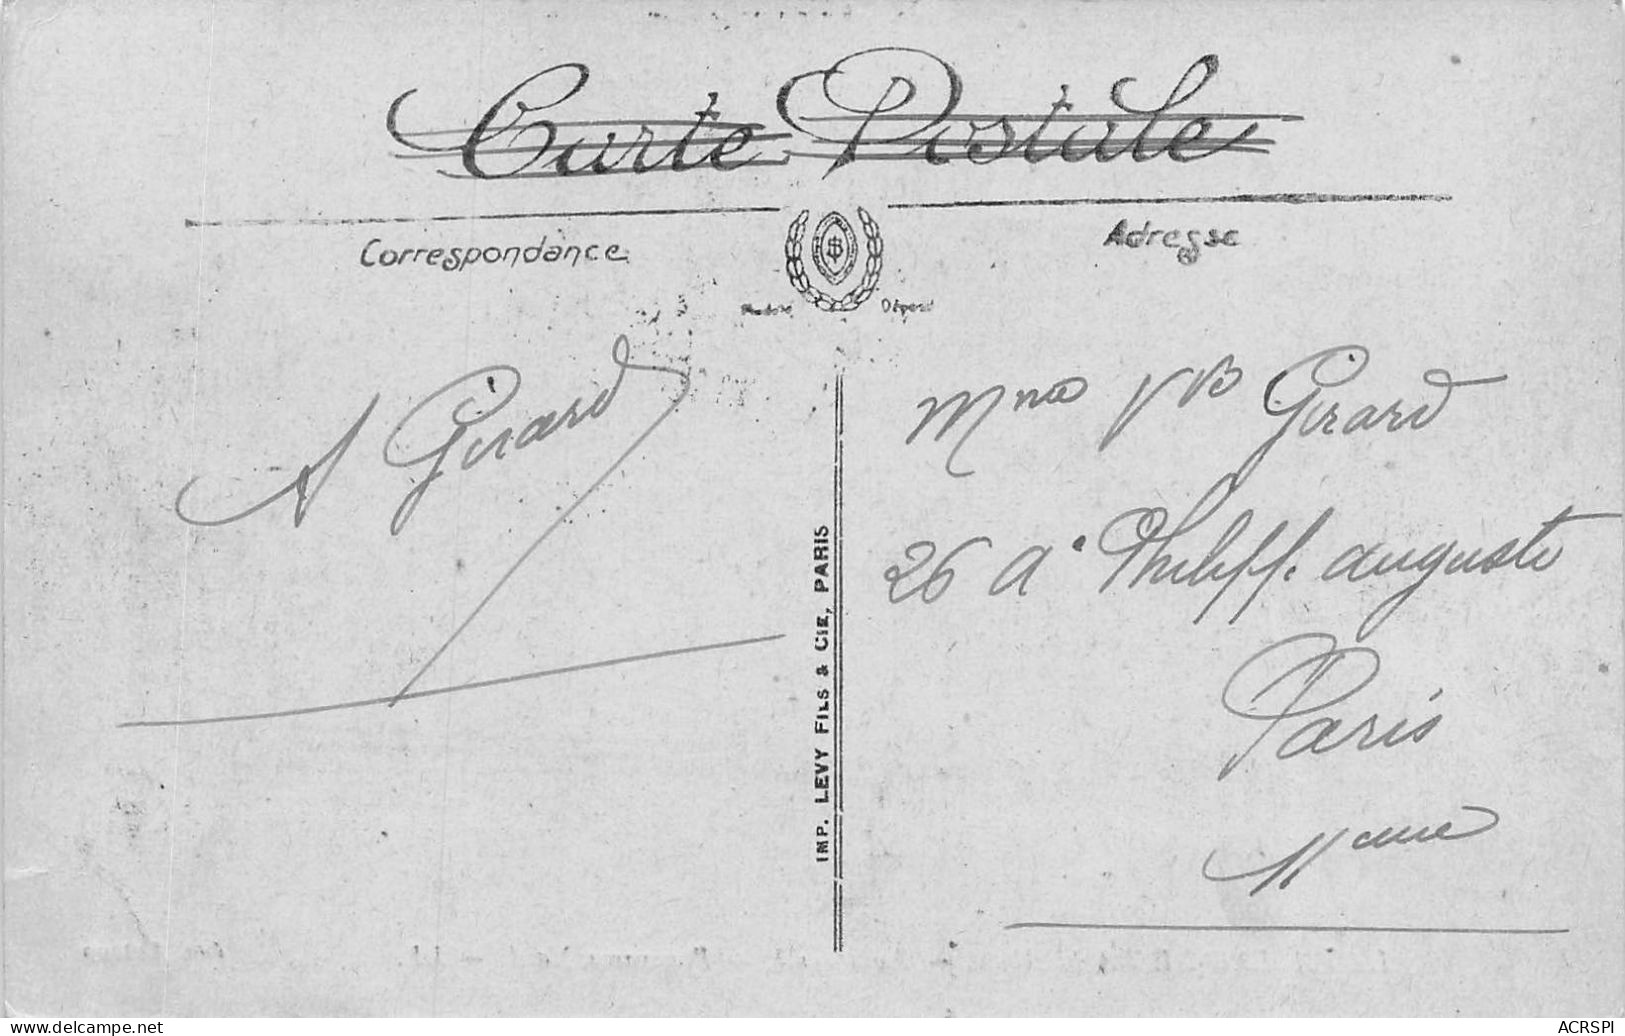 Carte Postale
Correspondance
Adresse
Modèle Déposé
A Girard
IMP. LEVY FILS & CIE, PARIS
Mme Vve Girard
26 Ae Philipp. auguste
Paris
11eme
delcampe.net
ACRSPI